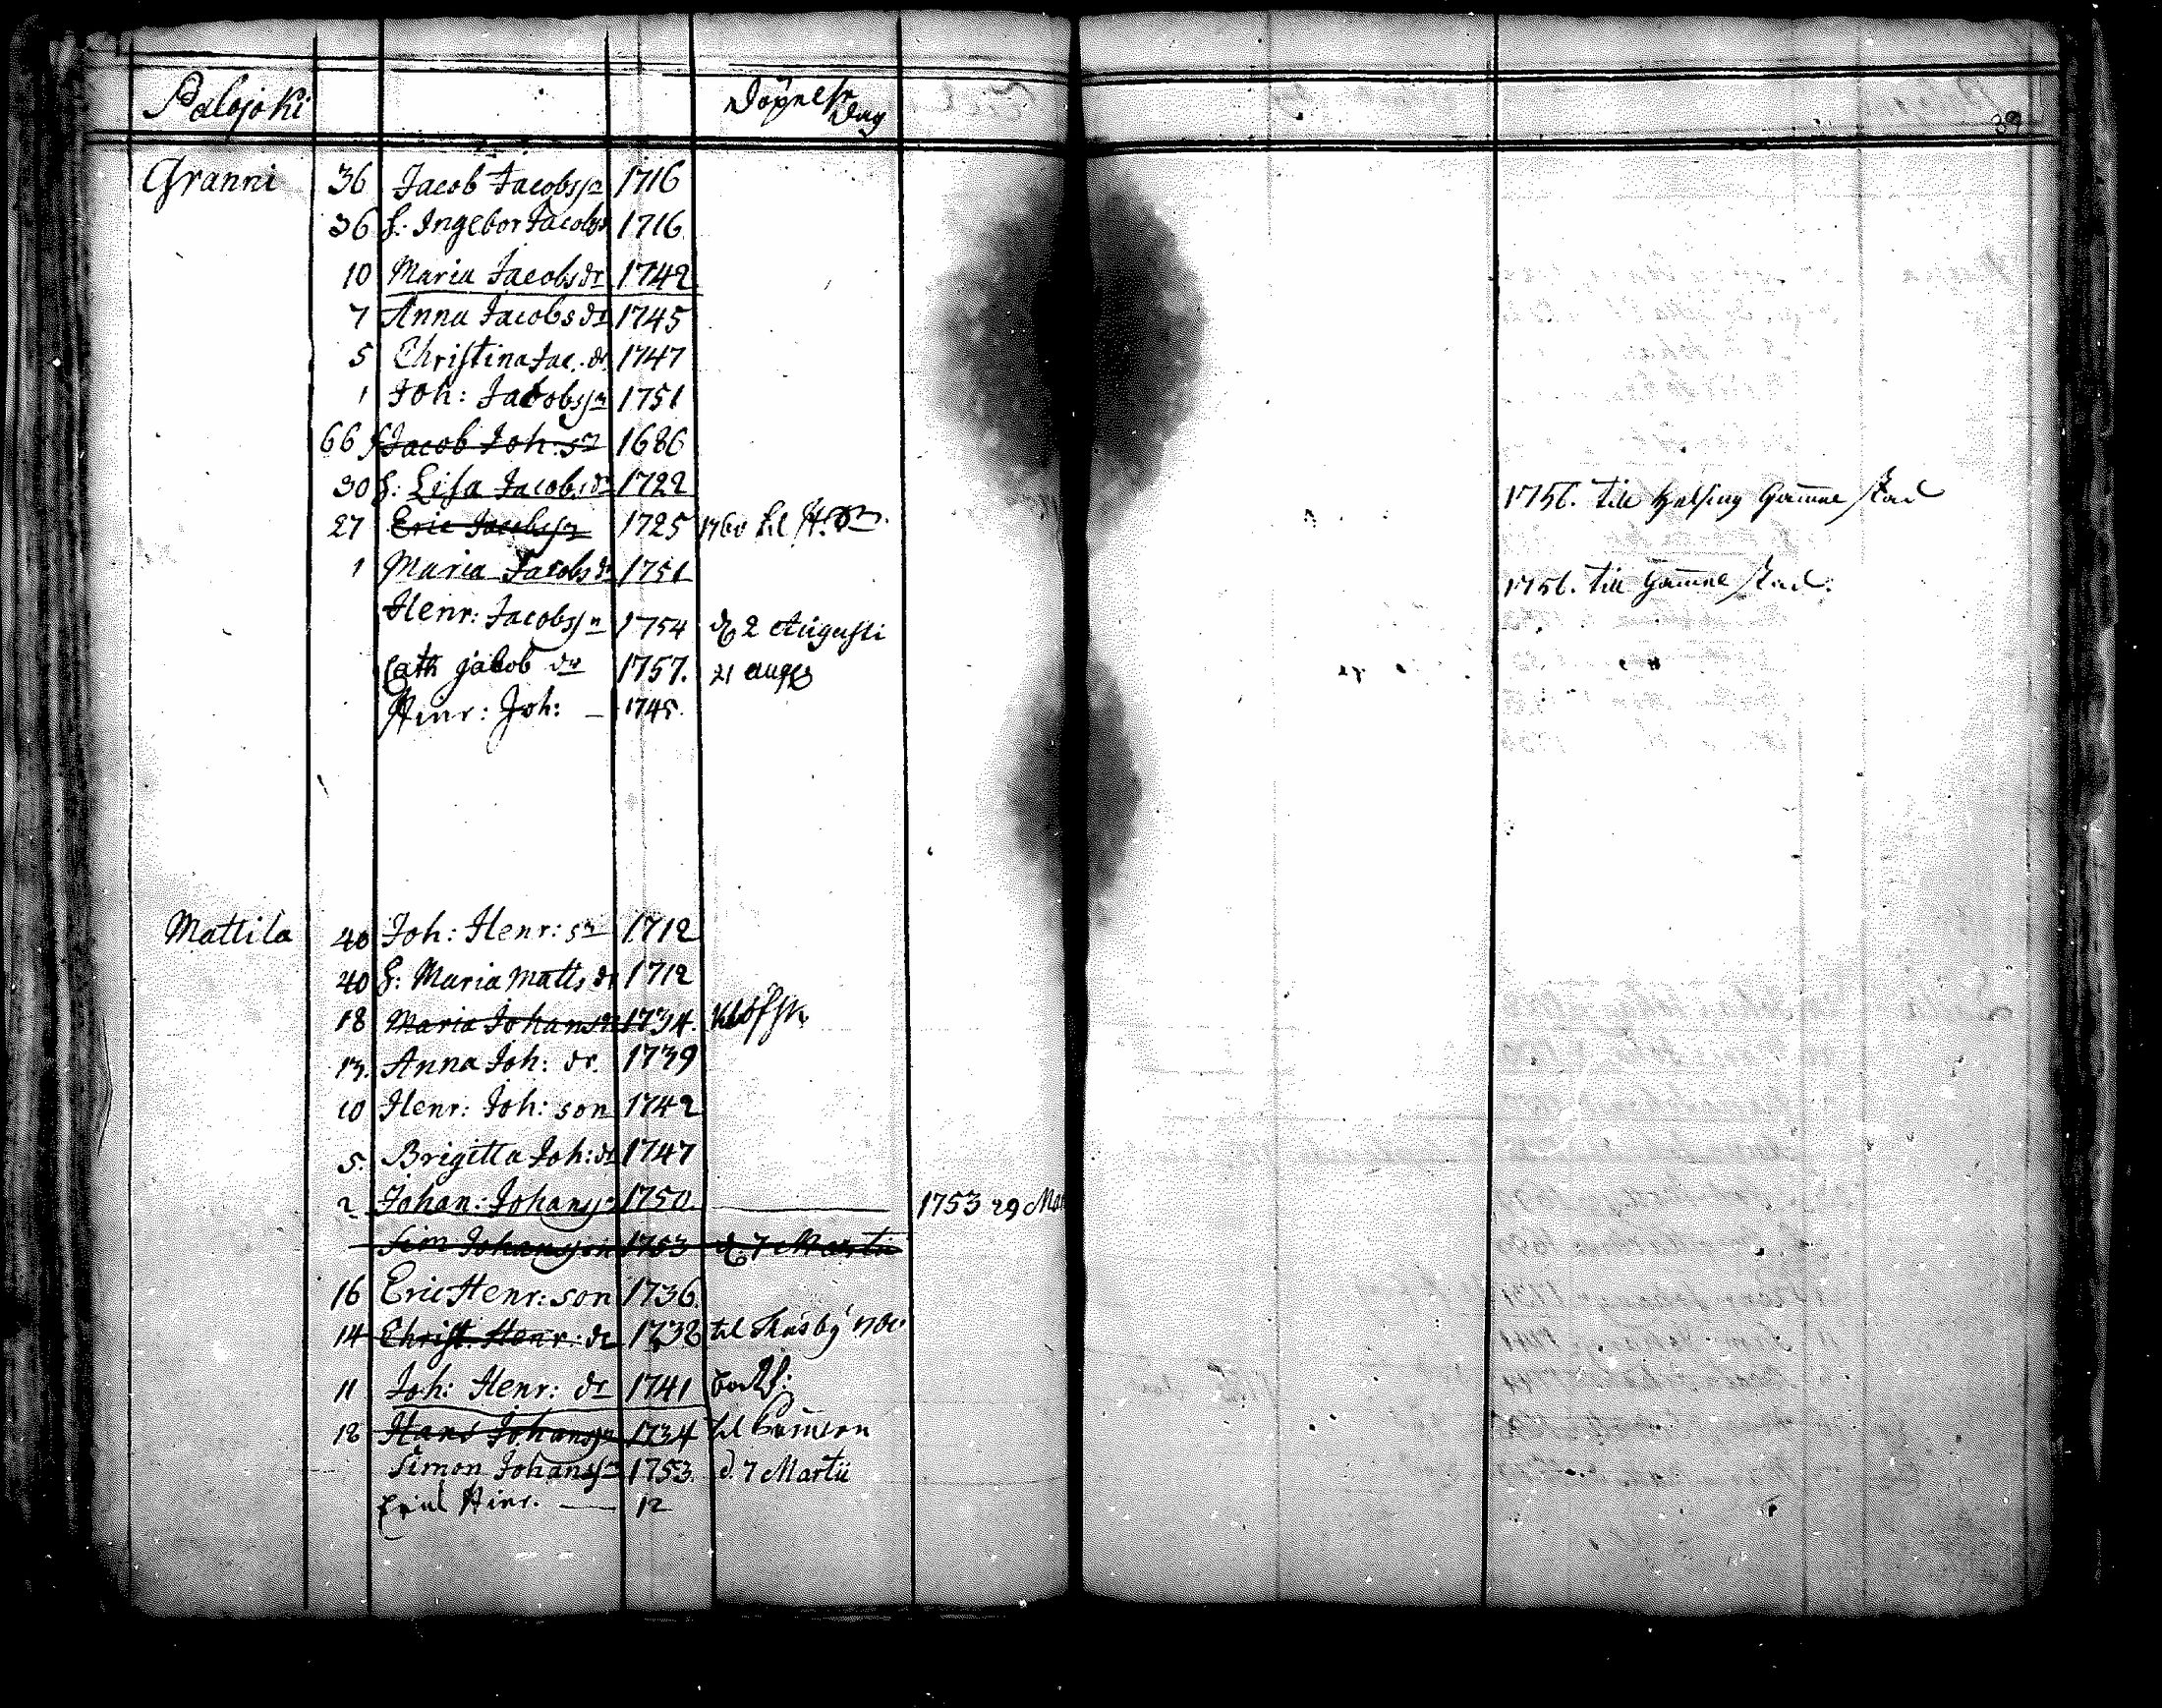 Palojoki Döpnelse Dag
89
Granni 36 Jacob Jacobss:n 1716
36 h: Ingebor Jacobs 1716
10 Maria Jacobs dr 1742
7 Anna Jacobs dr 1745
5 Christina Jac: dr 1747
1 Joh: Jacobss:n 1751
66 Jacob Joh: sn 1686
30 h: Lisa Jacobs dr 1722 1756. till Helsing Gamme stad
27 Eric Jacobss:n 1725 1760 til
1 Maria Jacobs dr 1751 1756. till Gamme stad.
Henr: Jacobss:n 1754 d 2 Augusti
Cath Jacob dr 1757. 21 aug
Hinr: Joh: — 1745.
Mattila 40 Joh: Henr: sn 1712
40 h: Maria Matts dr 1712
18 Maria Johans 1734.
13. Anna Joh: dr. 1739
10 Henr: Joh: son 1742
5. Brigitta Joh: dr 1747
2 Johan: Johanss:n 1750. 1753 29 Mar
Sim Johansson 1753 d. 7 Martii
16 Eric Henr: son 1736.
14 Christ. Henr: dr 1738 til
11 Joh: Henr: dr 1741
18 Hans Johanss:n 1734 til
Simon Johanss:n 1753. d. 7 Martii
Hinr. — 12